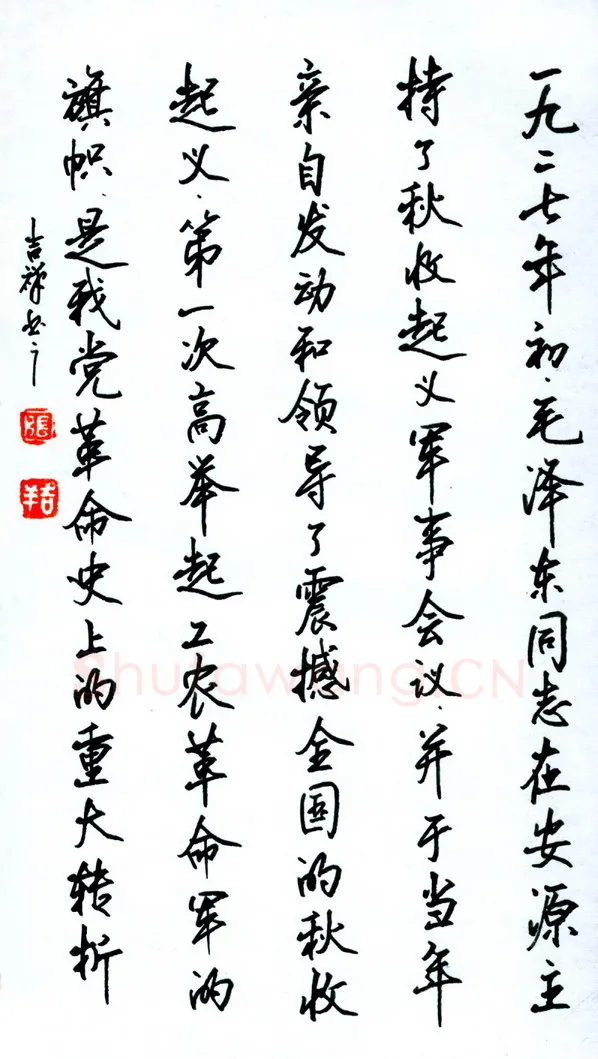 一九二七年初、毛泽东同志在安源主
持了秋收起义军事会议、并于当年
亲自发动和领导了震撼全国的秋收
起义、第一次高举起工农革命军的
旗帜、是我党革命史上的重大转折
吉祥书
張
吉羊
Shufawang.CN